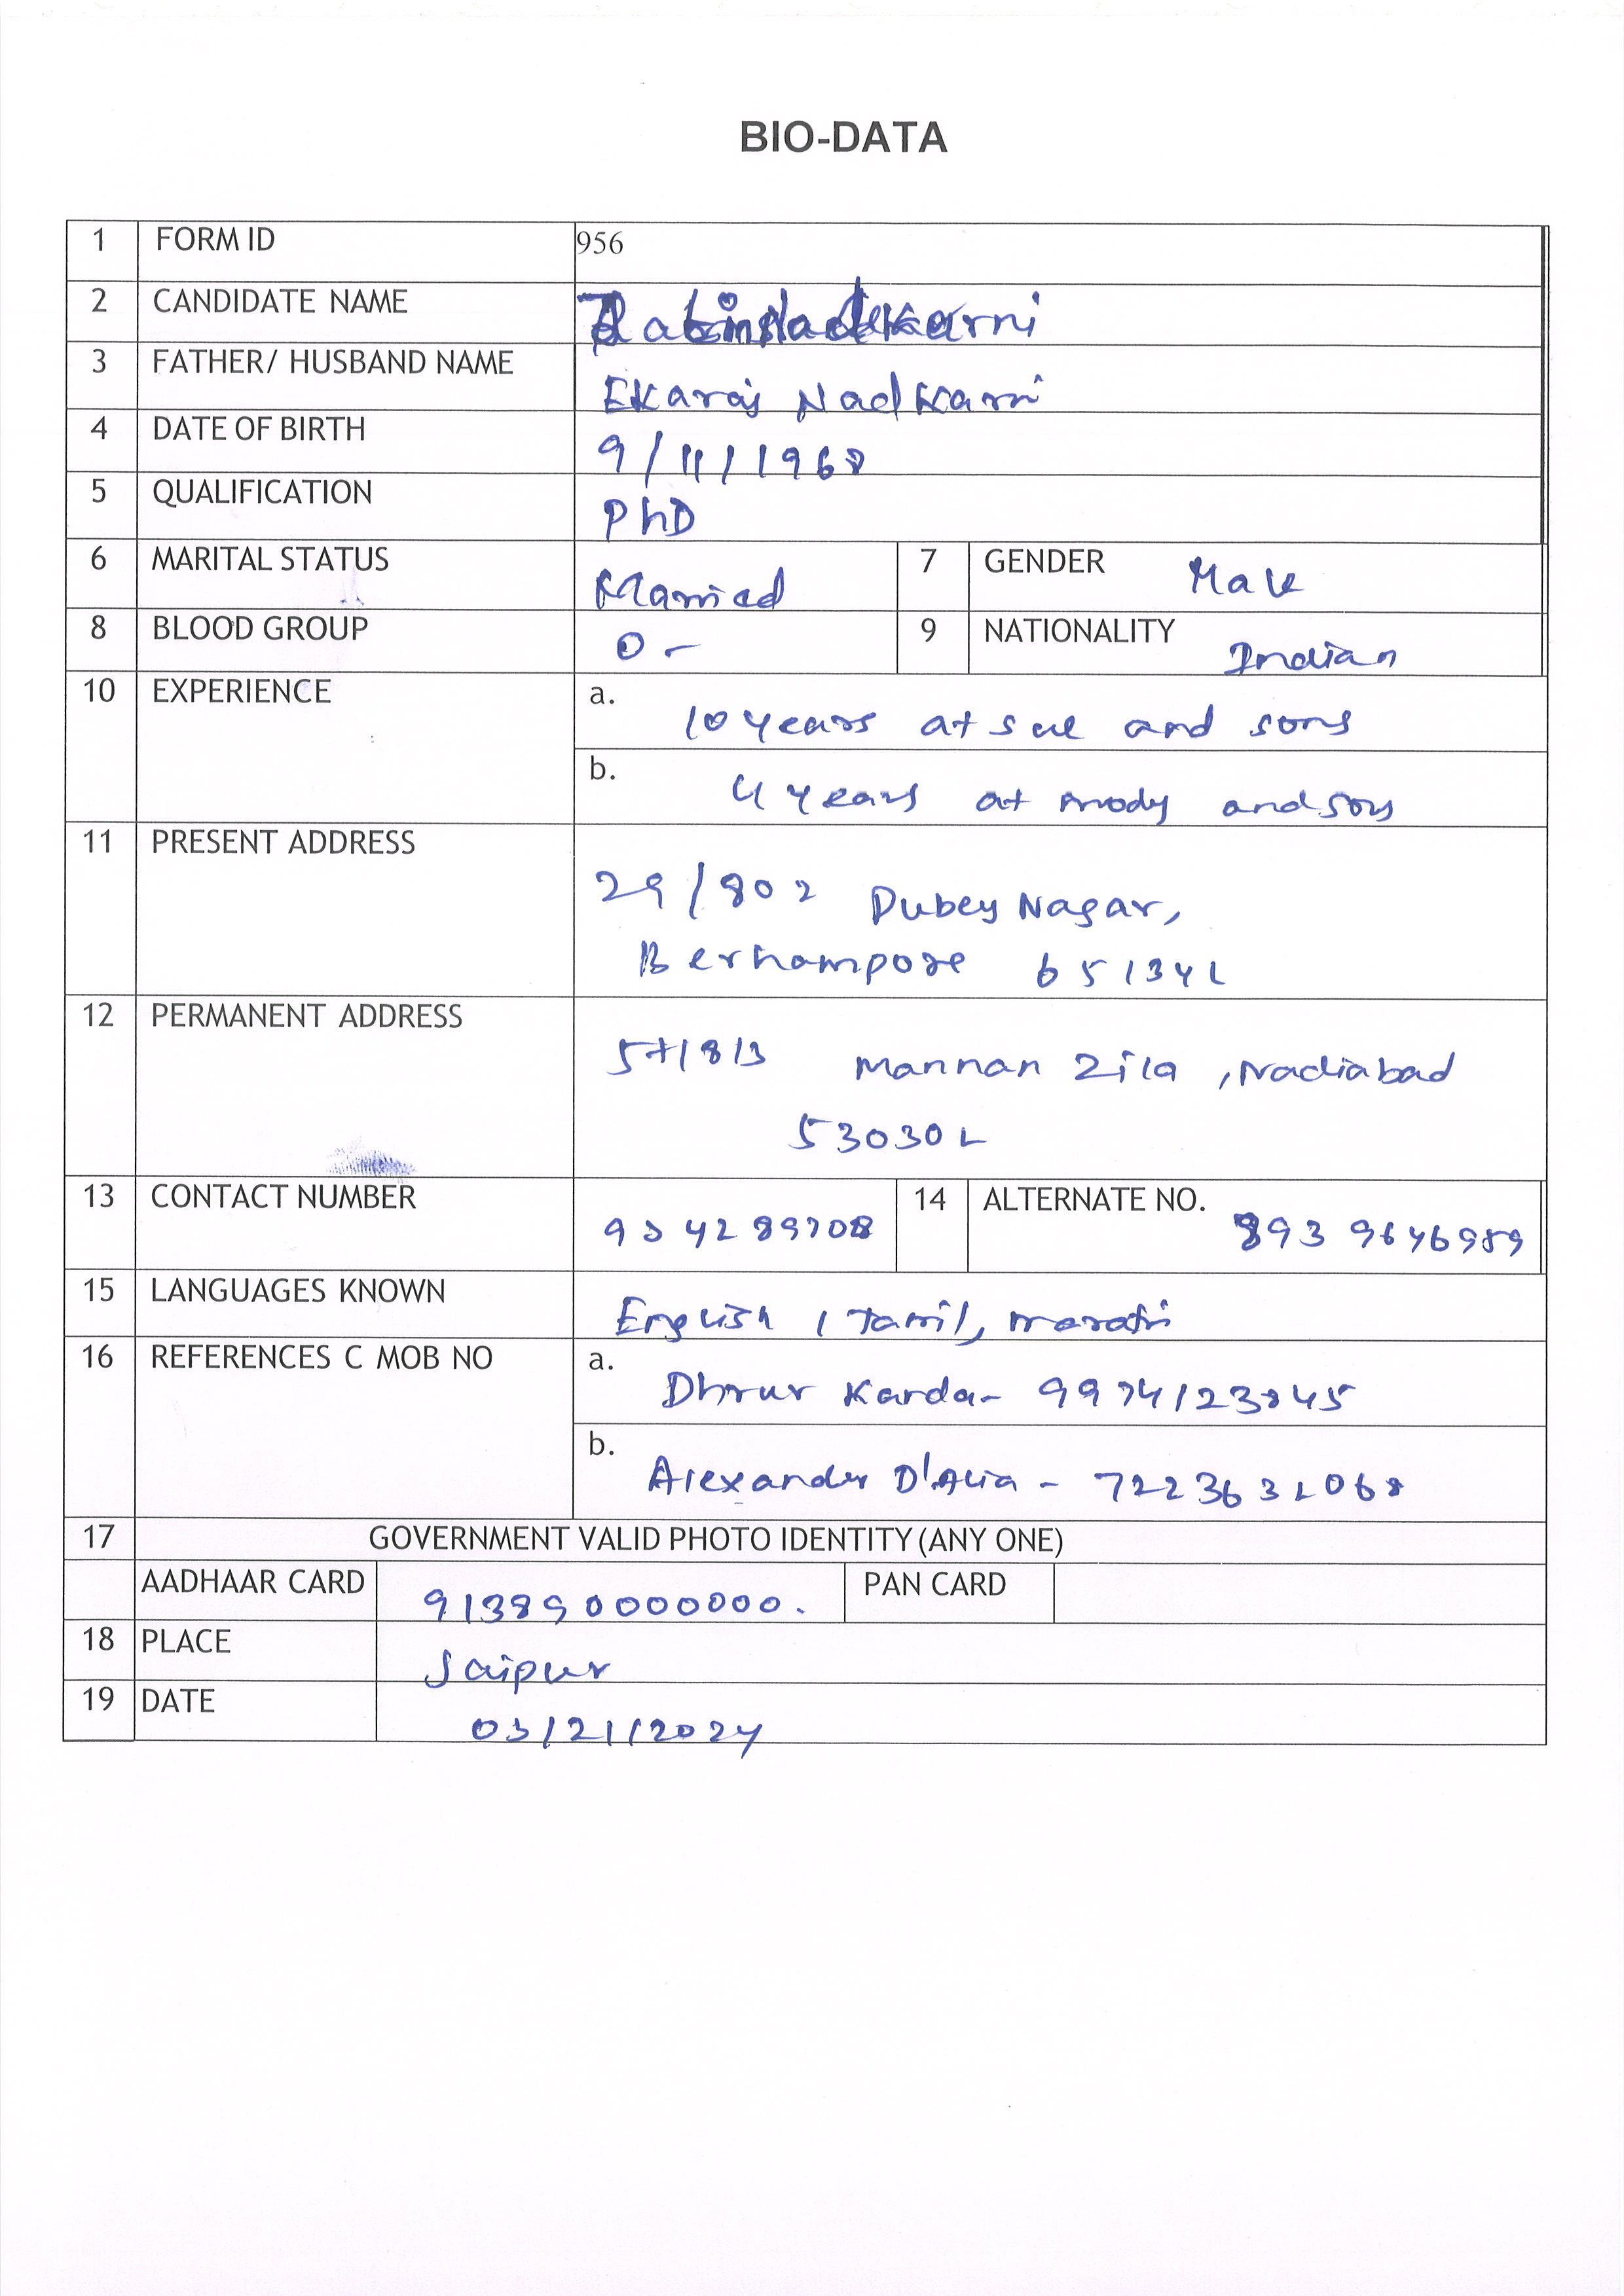 BIO-DATA
1 FORM ID 956
2 CANDIDATE NAME
3 FATHER/ HUSBAND NAME Ekaraj Nadkarni
4 DATE OF BIRTH 9/11/1968
5 QUALIFICATION PhD
6 MARITAL STATUS Married 7 GENDER Male
8 BLOOD GROUP O- 9 NATIONALITY Indian
10 EXPERIENCE a. 10 years at Sule and sons
b. 4 years at mody and sons
11 PRESENT ADDRESS
29/802 Dubey Nagar,
Berhampore 651342
12 PERMANENT ADDRESS
Mannan Zila, Nadiabad
530302
13 CONTACT NUMBER 14 ALTERNATE NO. 8939646989
15 LANGUAGES KNOWN English, Tamil, marathi
16 REFERENCES C MOB NO a. Dhruv Karda- 9974123845
b. Alexander D'Alia - 7223632068
17 GOVERNMENT VALID PHOTO IDENTITY (ANY ONE)
AADHAAR CARD 913890000000. PAN CARD
18 PLACE Jaipur
19 DATE 03/21/2024